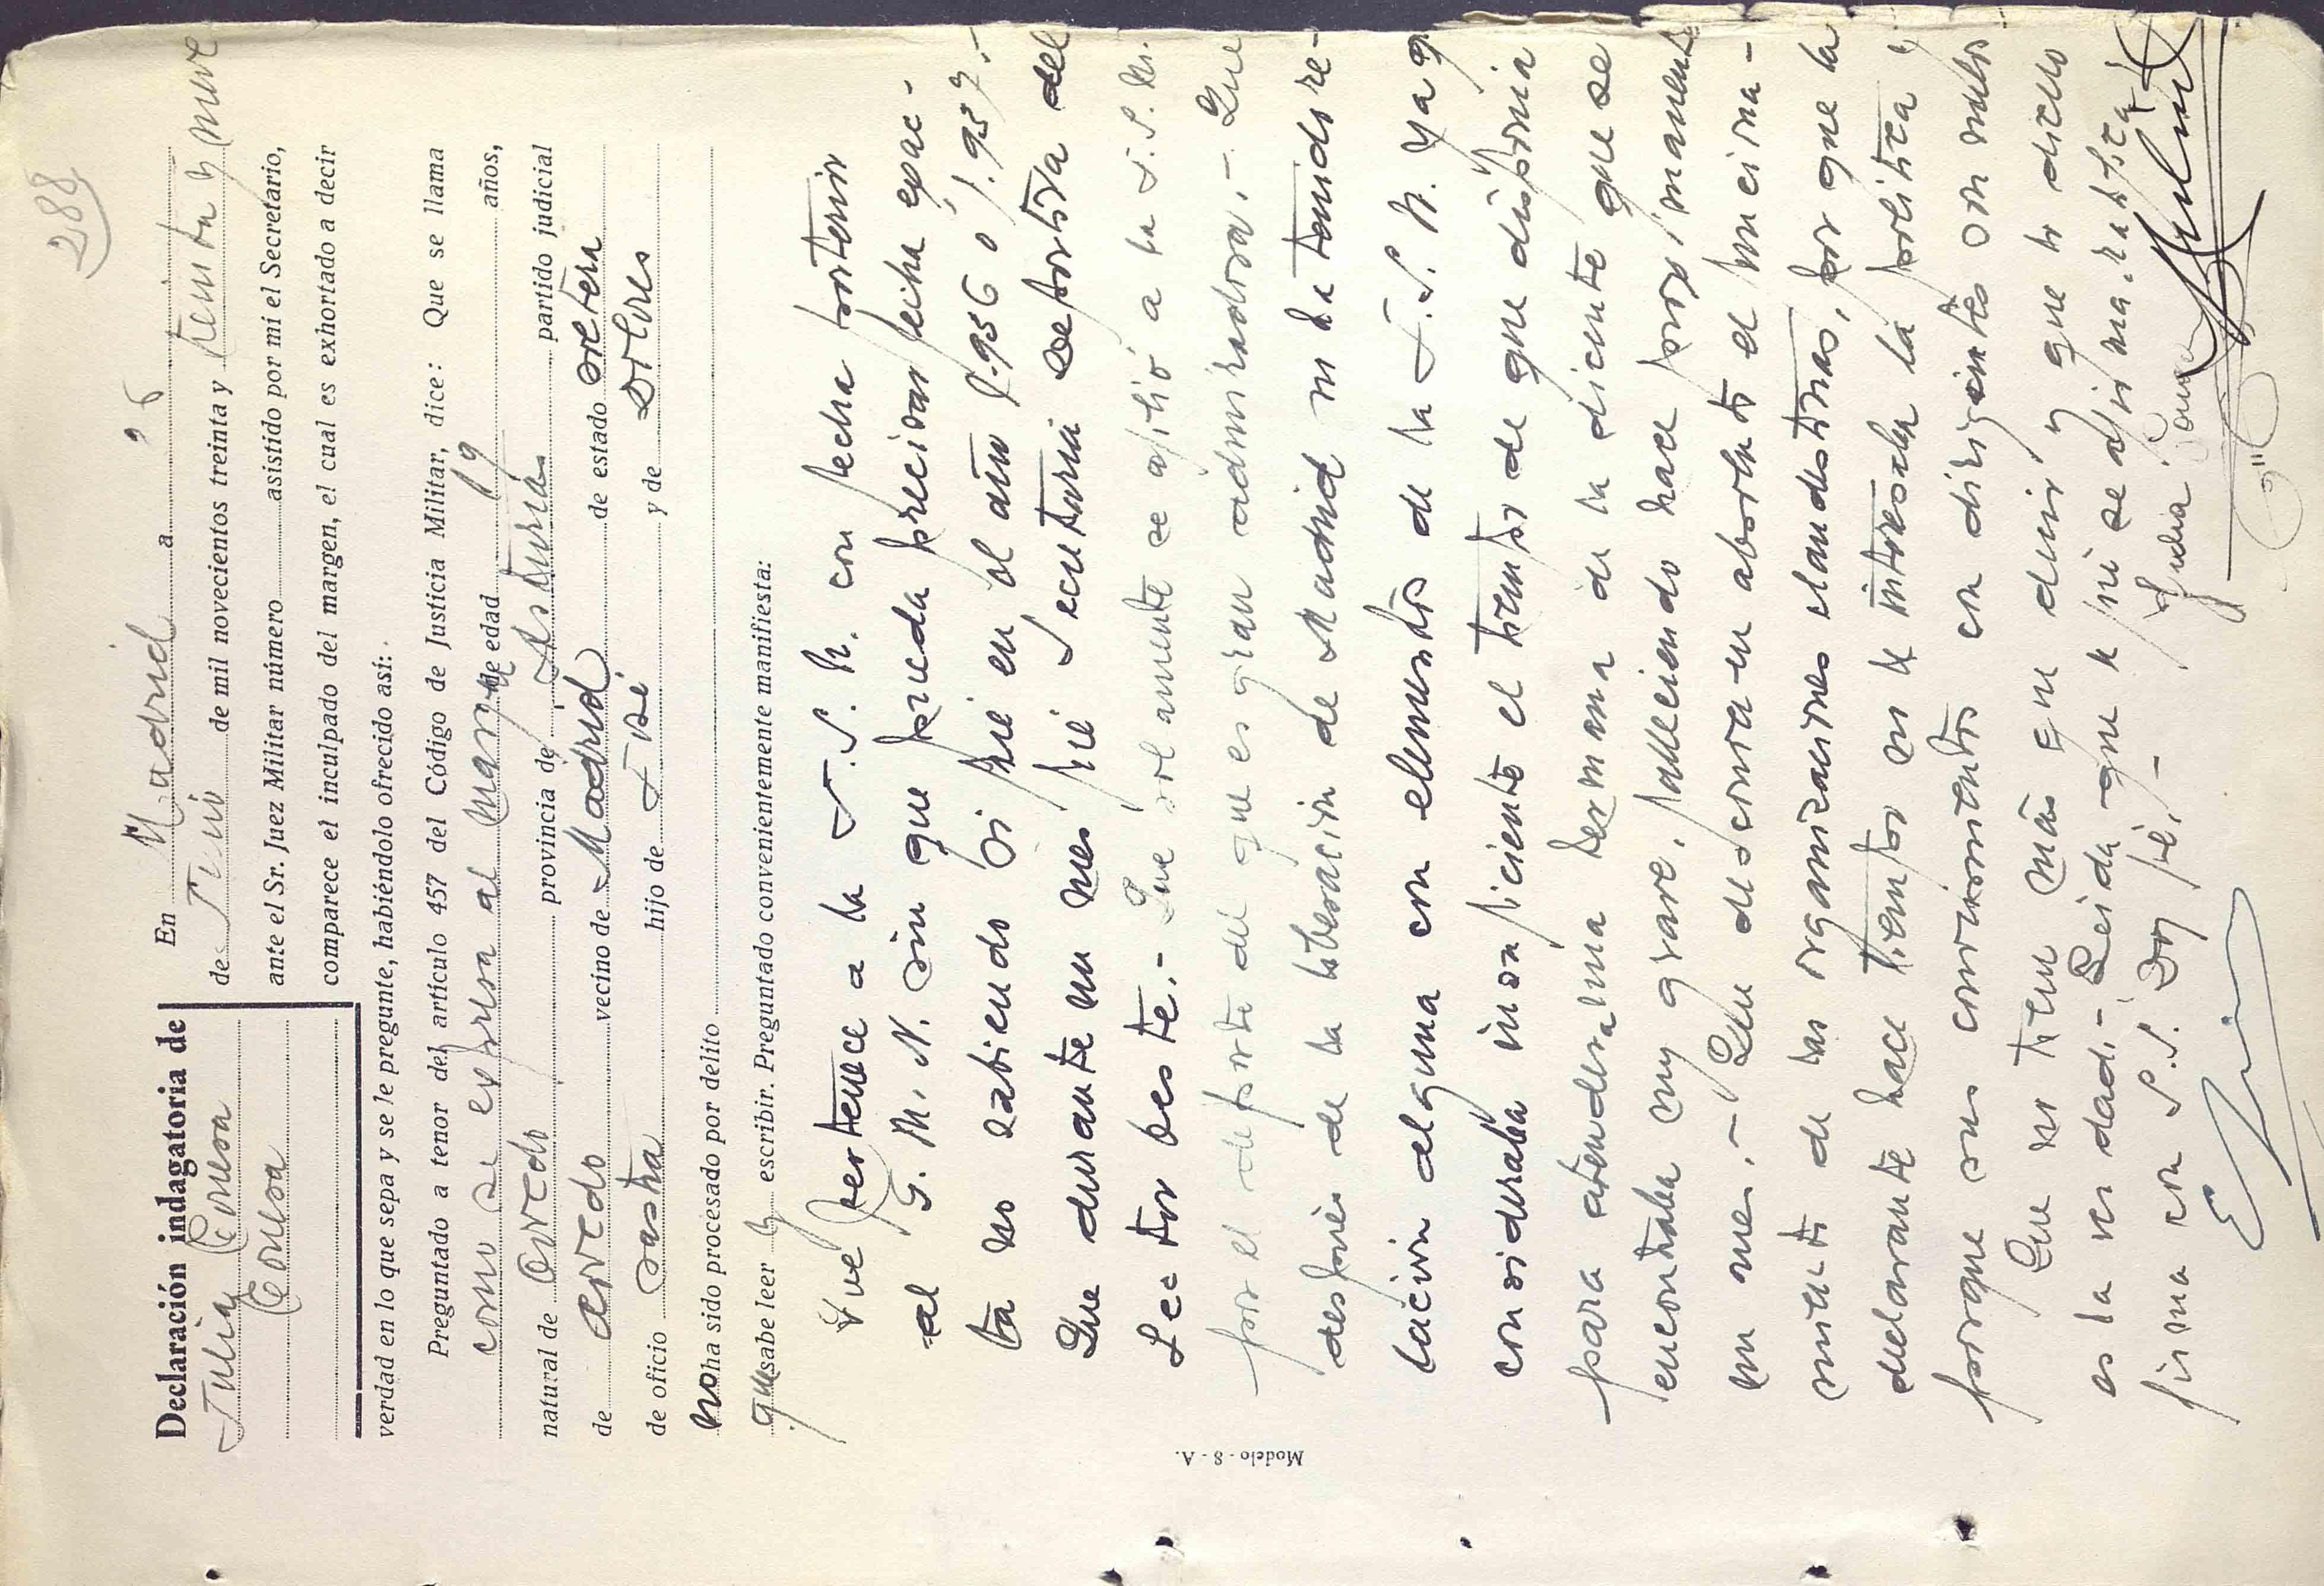 288
Declaración indagatoria de
Julia Conesa
Conesa
En Madrid a
de Junio de mil novecientos treinta y treinta y nueve
ante el Sr. Juez Militar número asistido por mi el Secretario,
comparece el inculpado del margen, el cual es exhortado a decir
verdad en lo que sepa y se le pregunte, habiéndolo ofrecido así:
Preguntado a tenor del artículo 457 del Código de Justicia Militar, dice: Que se llama
como se expresa al margen de edad 19 años,
natural de Oviedo provincia de Asturias partido judicial
de Oviedo vecino de Madrid de estado soltera
de oficio sastra hijo de José y de Dolores
no ha sido procesado por delito
que sabe leer y escribir. Preguntado convenientemente manifiesta:
Que pertenece a la J.S.U. con fecha posterior
al G. M. N. sin que pueda precisar fecha exac-
ta no sabiendo si fué en el año 1.936 o 1.937.-
Que durante un mes fué Secretaria deportiva del
Sector Oeste.- Que solamente se afilió a la J.S.U.
por el deporte del que es gran admiradora.- Que
después de la liberación de Madrid no ha tenido re-
lación alguna con elementos de la J.S.U. ya q
consideraba insuficiente el tiempo de que disponia
para atender a una hermana de la dicente que se
encontraba muy grave, falleciendo hace proximamente
un mes.- Que desconoce en absoluto el funciona-
miento de las organizaciones clandestinas, por que la
declarante hace tiempo no le interesaba la politica y
porque sus conocimientos con dirigentes son nulos
Que no tiene más que decir y que lo dicho
es la verdad.- Leida que le fué se afirma, ratifica y
firma con S.S. Doy fé.-
Julia Conesa
Modelo - 8 - A.